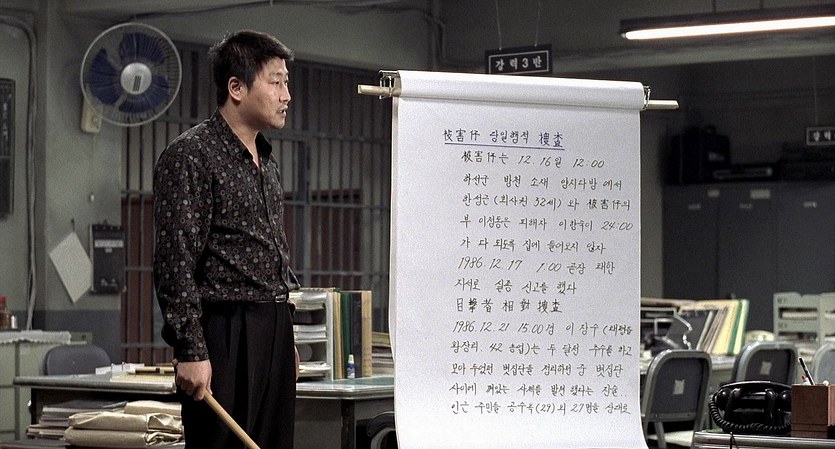 강력3반
被害仔 당일행적 搜査
被害仔는 12.16일 12:00
화산군 방천 소재 암시다방 에서
한성근 (회사원 32세) 와 被害仔의
부 이성동은 피해자 이향숙이 24:00
가 다 되도록 집에 들어오지 않자
1986.12.17 1:00 곧장 태안
지서로 실종 신고를 했다
目擊者 相對 搜査
1986.12.21 15:00경 이 장수 (태안읍
42 농업)는 두 달전 수수를 하고
모아 두었던 볏짚단을 정리하던 중 볏짚단
사이에 껴있는 사체를 발견 했다는 진술..
인근 주민들 공수복 (29) 외 27명을 상대로